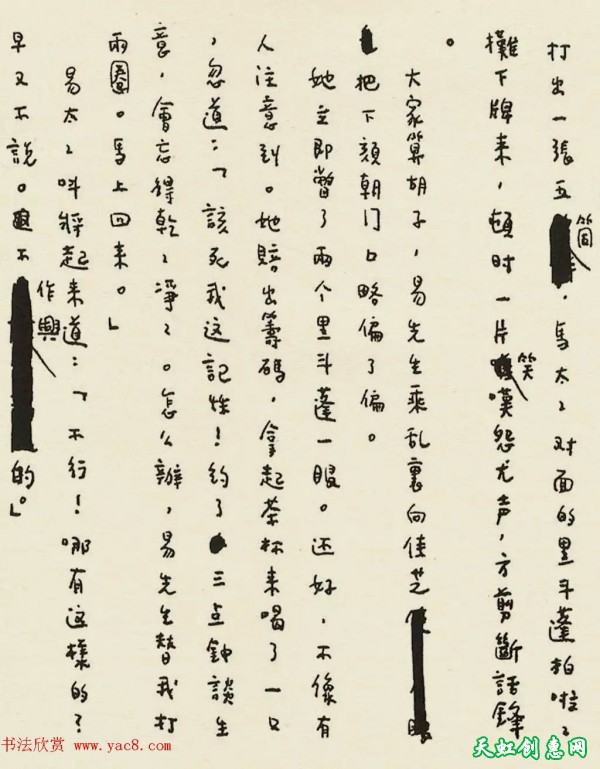 打出一張五筒,馬太〻对面的黑斗蓬拍啦〻
攤下牌来,頓时一片笑嘆怨尤声,方剪斷話鋒
。
大家算胡子,易先生乘乱裏向佳芝
把下頦朝门口略偏了偏。
她立即瞥了兩个黑斗蓬一眼。还好,不像有
人注意到。她賠出籌碼,拿起茶杯来喝了一口
,忽道:「該死我这記性!約了三点鈡談生
意,會忘得乾〻淨〻。怎么辦,易先生替我打
兩圈。馬上回来。」
易太〻叫將起来道:「不行!哪有这樣的?
早又不說。不作興的。」
书法欣赏 www.yac8.com
天虹创意网